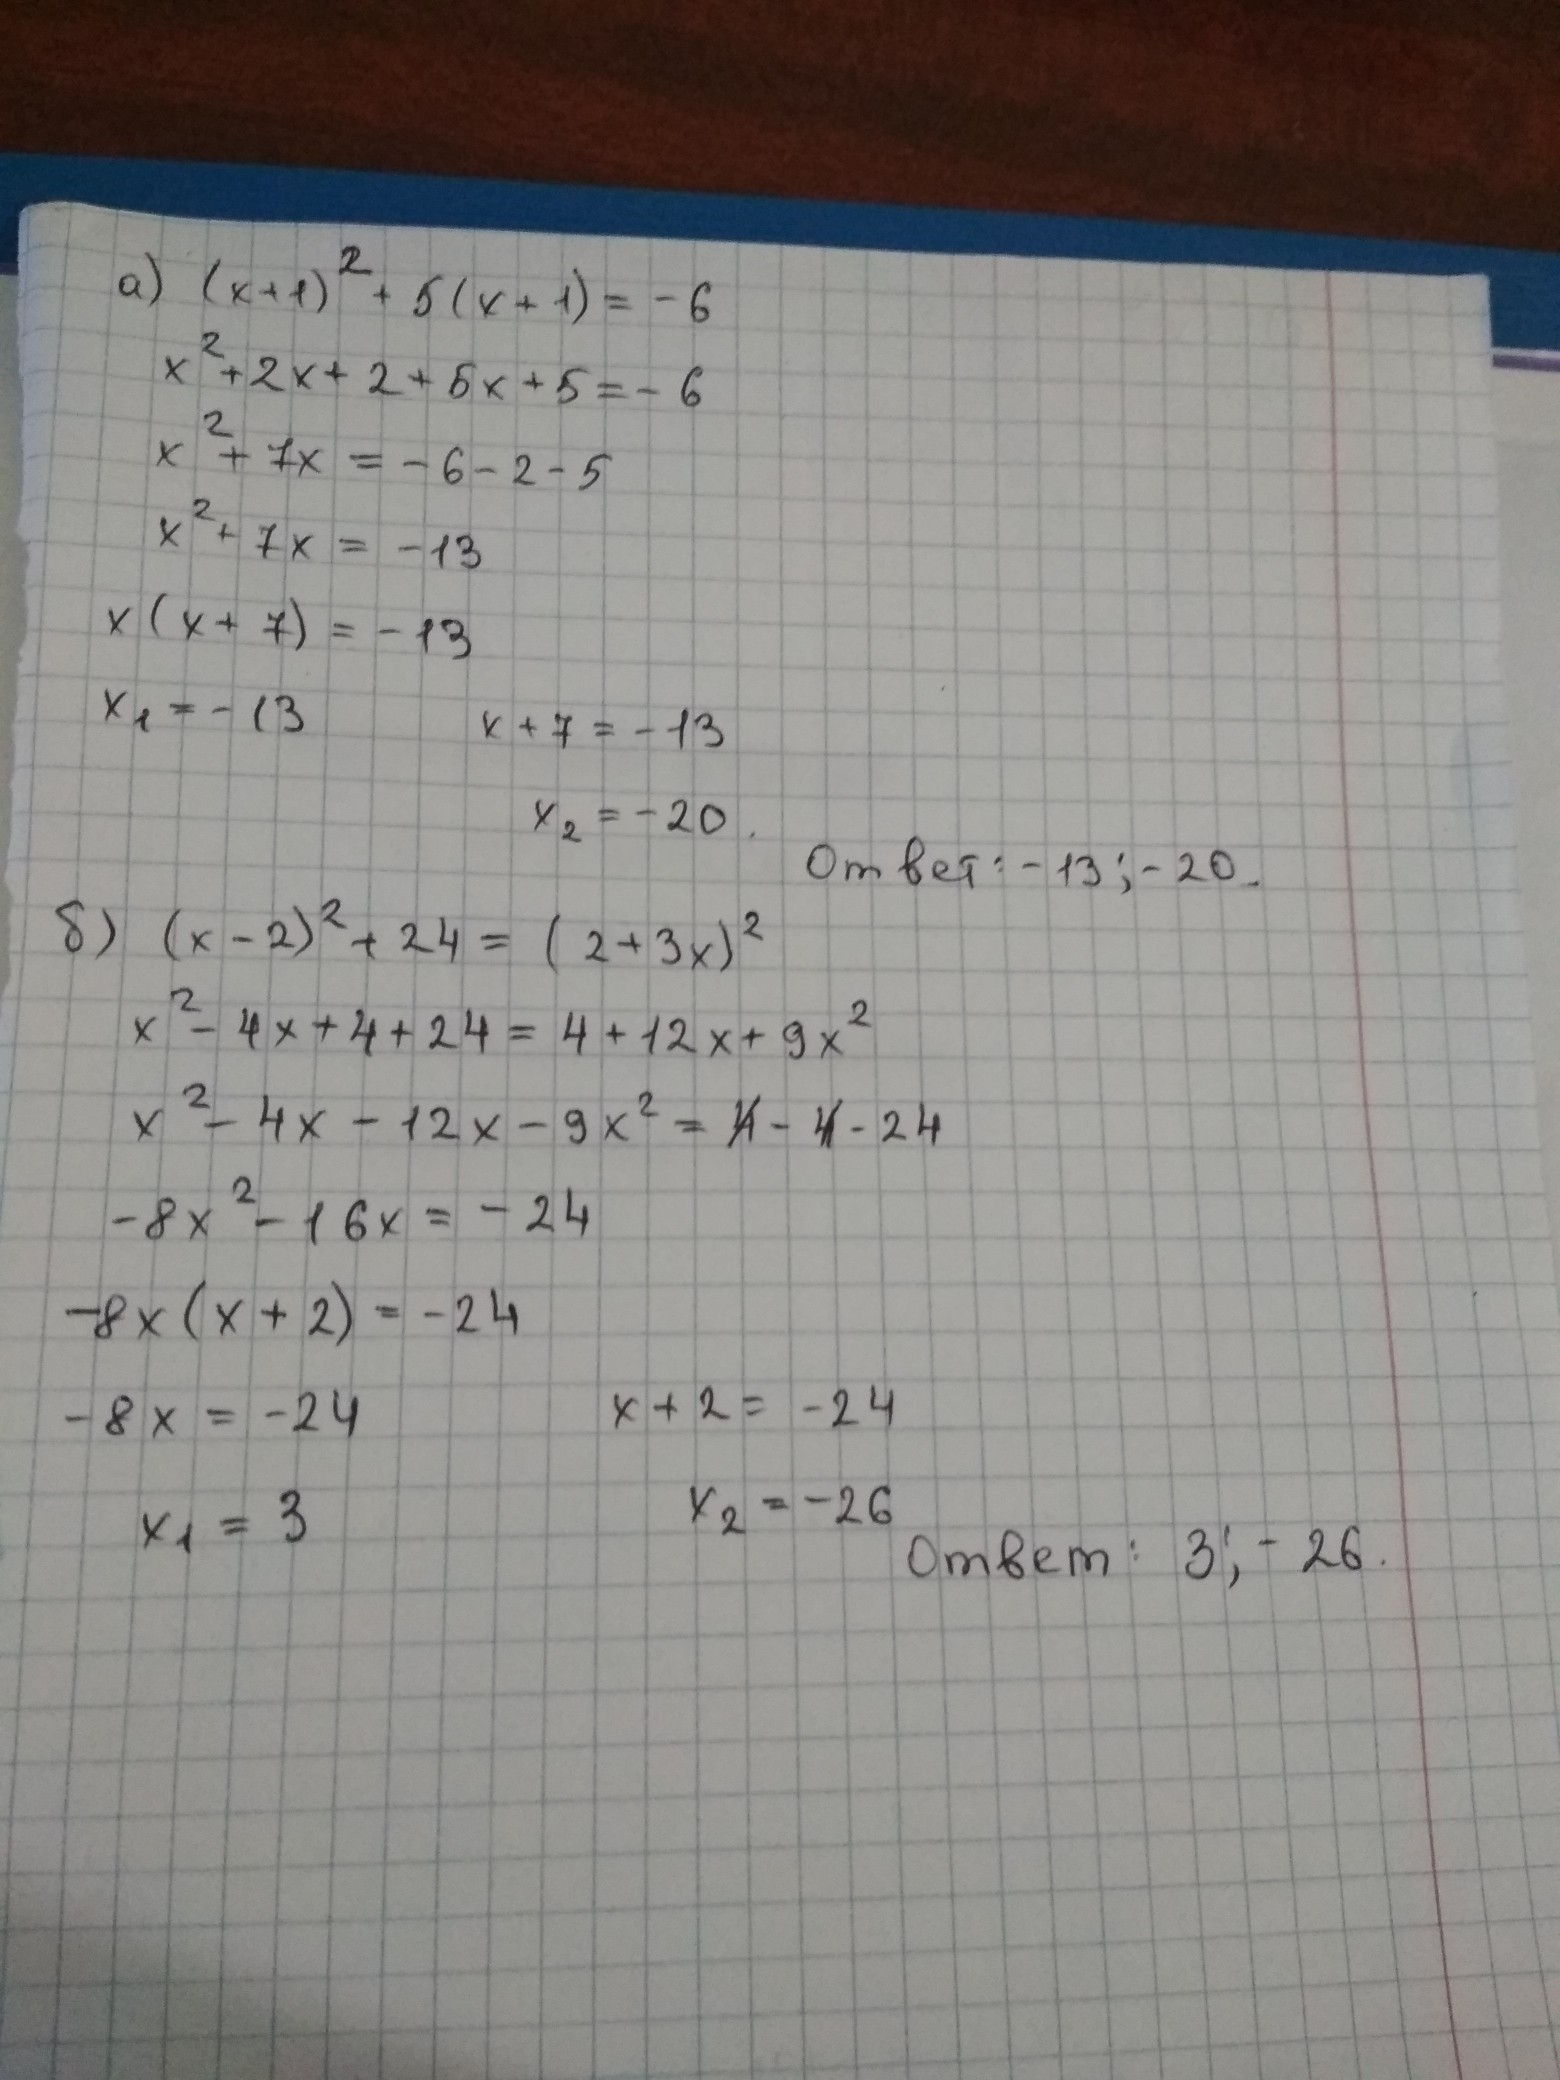 а) (x+1)² + 5(x+1) = -6
x² + 2x + 2 + 5x + 5 = -6
x² + 7x = -6 - 2 - 5
x² + 7x = -13
x(x+7) = -13
x₁ = -13 x + 7 = -13
x₂ = -20.
Ответ: -13; -20.
б) (x-2)² + 24 = (2+3x)²
x² - 4x + 4 + 24 = 4 + 12x + 9x²
x² - 4x - 12x - 9x² = 4 - 4 - 24
-8x² - 16x = -24
-8x(x+2) = -24
-8x = -24 x + 2 = -24
x₁ = 3 x₂ = -26
Ответ: 3; -26.